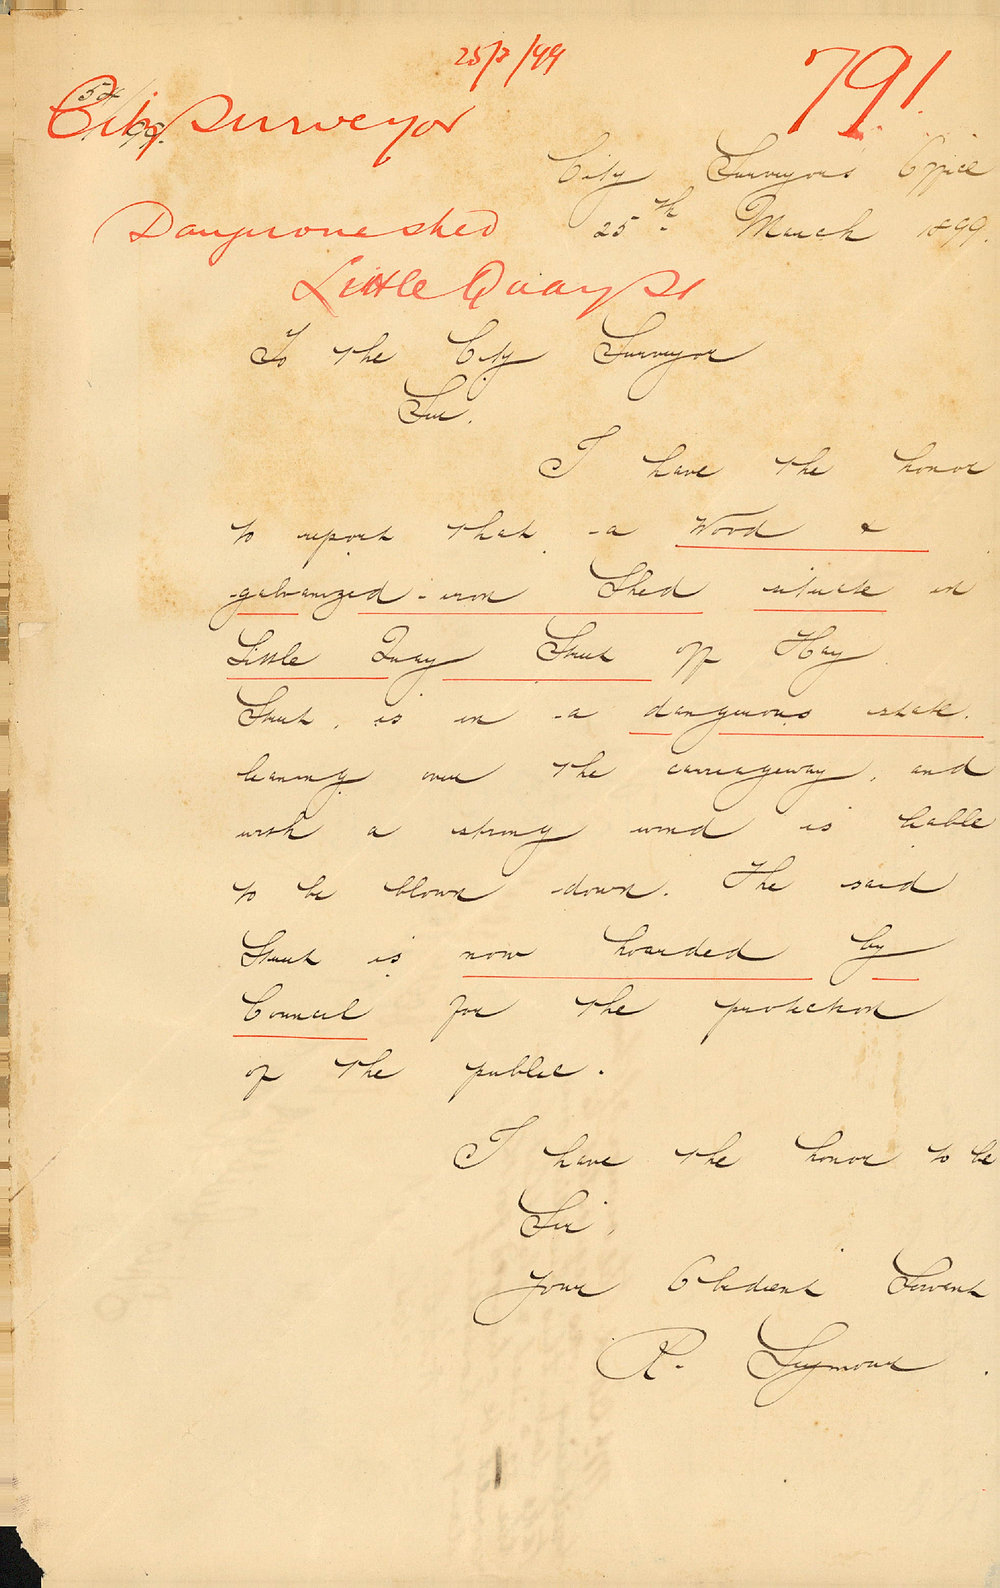 25/3/99
791
54
99.
City Surveyor
City Surveyors Office
Dangerous shed
25th March 1899.
Little Quay St
To the City Surveyor
Sir,
I have the honor
to report that a Wood &
galvanized-iron Shed situate in
Little Quay Street off Hay
Street, is in a dangerous state.
leaning over the carriageway, and
with a strong wind is liable
to be blown down. The said
Street is now hoarded by
Council for the protection
of the public.
I have the honor to be
Sir,
Your Obedient Servant
R. Seymour.